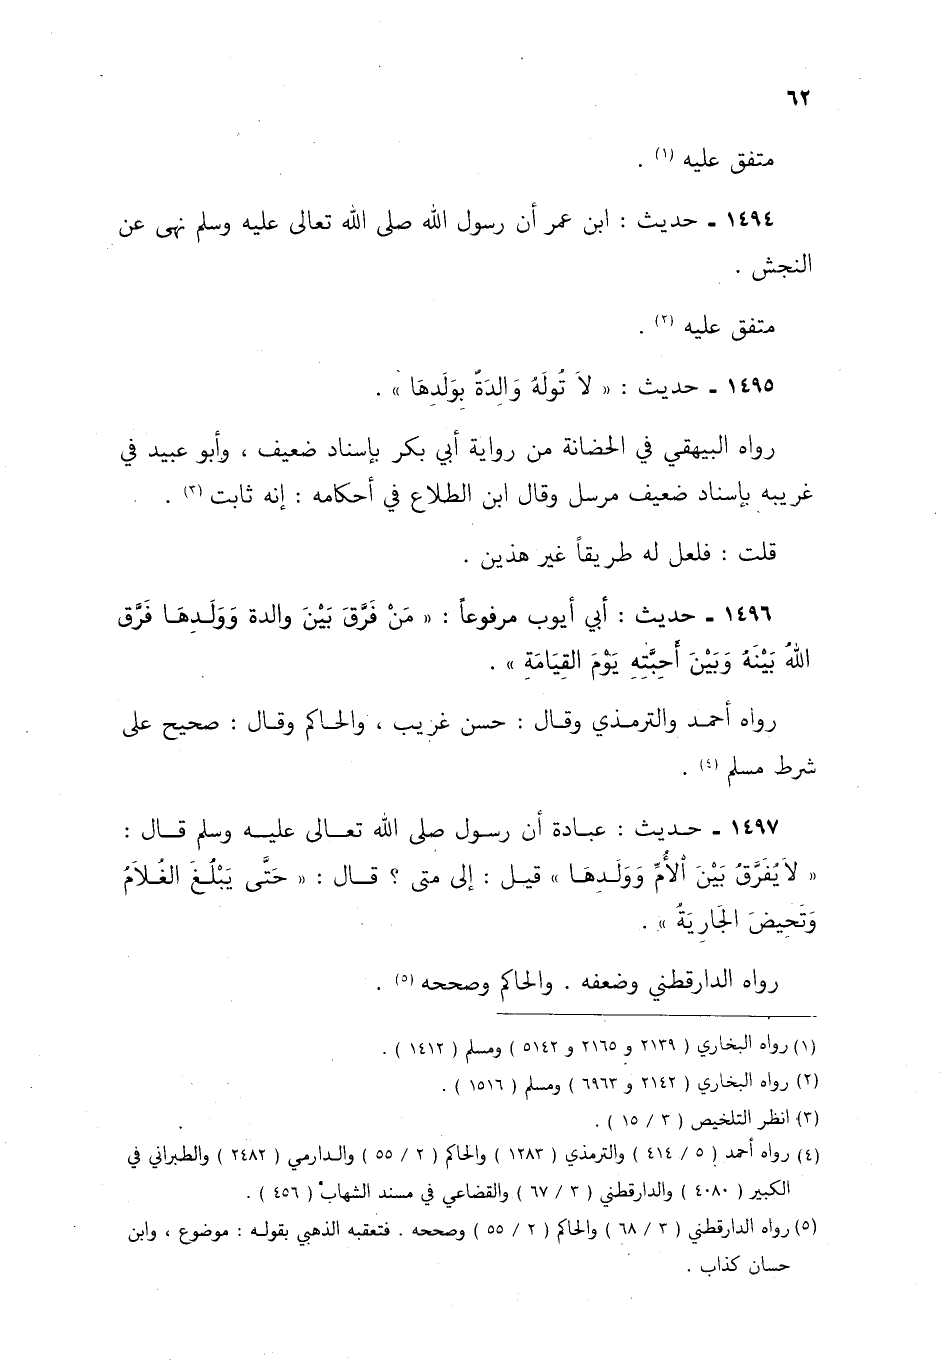 ٦٢
متفق عليه (١) .
١٤٩٤ - حديث : ابن عمر أن رسول الله صلى الله تعالى عليه وسلم نهى عن
النجش .
متفق عليه (٢) .
١٤٩٥ - حديث : « لاَ تُولَهُ وَالِدَةٌ بِوَلَدِهَا » .
رواه البيهقي في الحضانة من رواية أبي بكر بإسناد ضعيف ، وأبو عبيد في
غريبه بإسناد ضعيف مرسل وقال ابن الطلاع في أحكامه : إنه ثابت (٣) .
قلت : فلعل له طريقاً غير هذين .
١٤٩٦ - حديث : أبي أيوب مرفوعاً : « مَنْ فَرَّقَ بَيْنَ والدة وَوَلَدِهَا فَرَّق
اللهُ بَيْنَهُ وَبَيْنَ أَحِبَّتِهِ يَوْمَ القِيَامَةِ » .
رواه أحمد والترمذي وقال : حسن غريب ، والحاكم وقال : صحيح على
شرط مسلم (٤) .
١٤٩٧ - حديث : عبادة أن رسول صلى الله تعالى عليه وسلم قال :
« لاَيُفَرَّقُ بَيْنَ اْلأُمِّ وَوَلَدِهَا » قيل : إلى متى ؟ قال : « حَتَّى يَبْلُغَ الغُلاَمُ
وَتَحِيضَ الجَارِيَةُ » .
رواه الدارقطني وضعفه . والحاكم وصححه (٥) .
(١) رواه البخاري ( ٢١٣٩ و ٢١٦٥ و ٥١٤٢ ) ومسلم ( ١٤١٢ ) .
(٢) رواه البخاري ( ٢١٤٢ و ٦٩٦٣ ) ومسلم ( ١٥١٦ ) .
(٣) انظر التلخيص ( ٣ / ١٥ ) .
(٤) رواه أحمد ( ٥ / ٤١٤ ) والترمذي ( ١٢٨٣ ) والحاكم ( ٢ / ٥٥ ) والدارمي ( ٢٤٨٢ ) والطبراني في
الكبير ( ٤٠٨٠ ) والدارقطني ( ٣ / ٦٧ ) والقضاعي في مسند الشهاب ( ٤٥٦ ) .
(٥) رواه الدارقطني ( ٣ / ٦٨ ) والحاكم ( ٢ / ٥٥ ) وصححه . فتعقبه الذهبي بقوله : موضوع ، وابن
حسان كذاب .